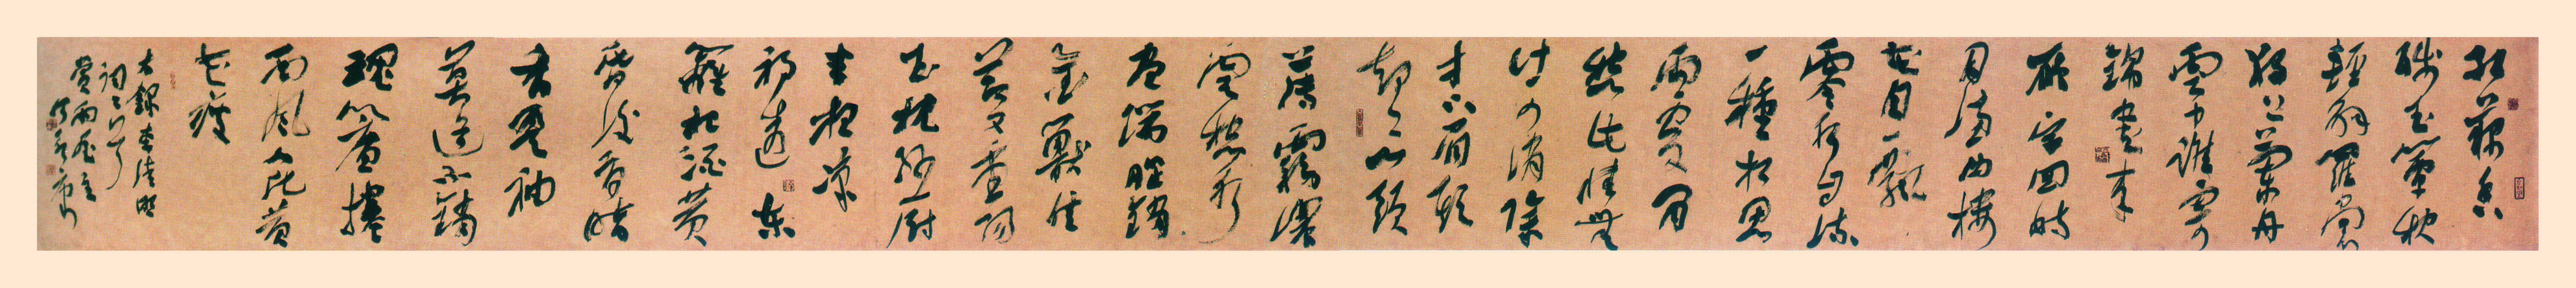 紅藕香
殘玉簟秋
輕解羅裳
獨上蘭舟
雲中誰寄
錦書來
雁字回時
月滿西樓
花自飄
零水自流
一種相思
兩處閒
愁此情無
計可消除
才下眉頭
卻上心頭
薄霧濃
雲愁永
晝瑞腦銷
金獸佳
節又重陽
玉枕紗厨
半夜涼
初透東
籬把酒黃
昏後有暗
香盈袖
莫道不銷
魂簾捲
西風人比黃
花瘦
右錄李清照
詞二首